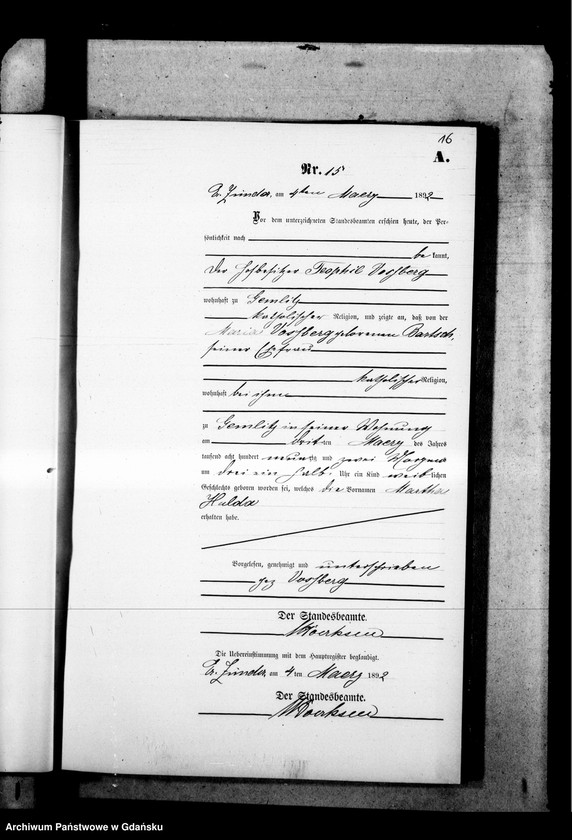 16
A.
Nr. 15
Gr. Zünder, am 4ten Maerz 1892
Vor dem unterzeichneten Standesbeamten erschien heute, der Per-
sönlichkeit nach
be kannt,
der Hofbesitzer Teophil Vossberg
wohnhaft zu Gemlitz
katholischer Religion, und zeigte an, daß von der
Maria Vossberg geborenen Bartsch,
seiner Ehefrau
katholischer Religion,
wohnhaft bei ihm
zu Gemlitz in seiner Wohnung
am dritten Maerz des Jahres
tausend acht hundert neunzig und zwei Morgens
um drei ein halb Uhr ein Kind weiblichen
Geschlechts geboren worden sei, welches die Vornamen Martha
Hulda
erhalten habe.
Vorgelesen, genehmigt und unterschrieben
gez Vossberg
Der Standesbeamte.
Die Uebereinstimmung mit dem Hauptregister beglaubigt.
Gr. Zünder, am 4 ten Maerz 1892
Der Standesbeamte.
Archiwum Państwowe w Gdańsku